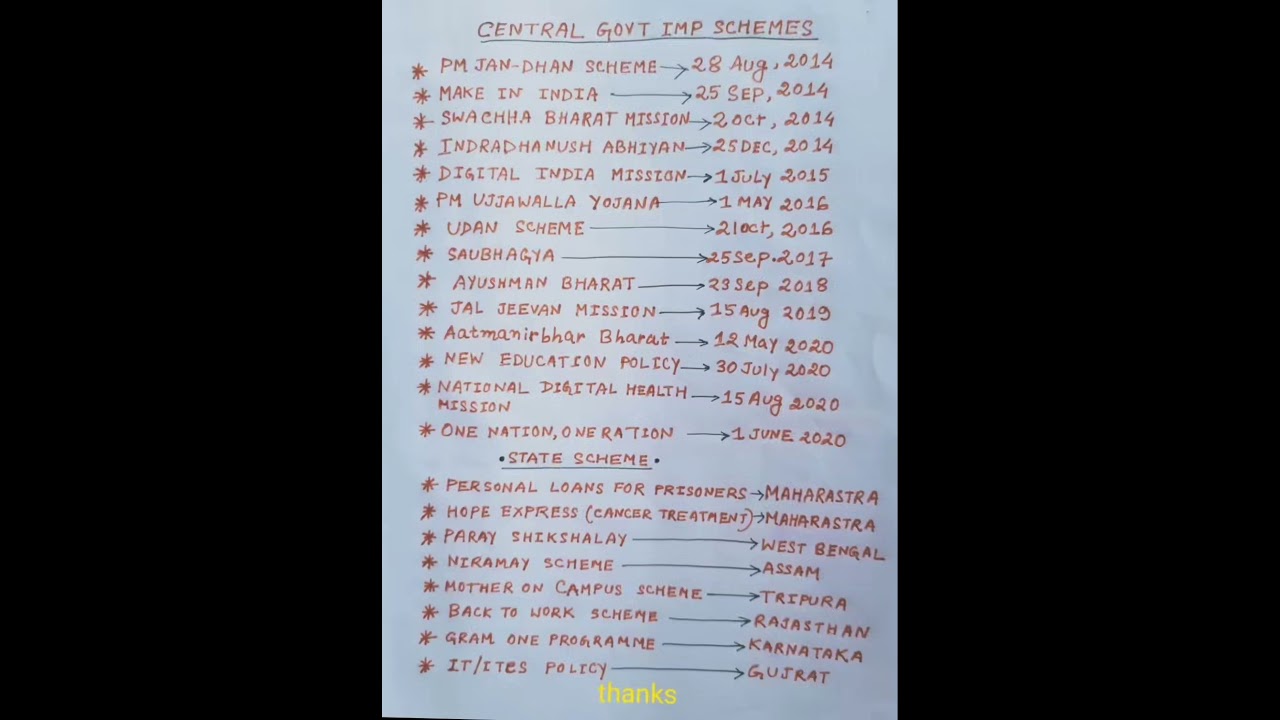 CENTRAL GOVT IMP SCHEMES
* PM JAN-DHAN SCHEME → 28 Aug, 2014
* MAKE IN INDIA → 25 SEP, 2014
* SWACHHA BHARAT MISSION → 2 Oct, 2014
* INDRADHANUSH ABHIYAN → 25 DEC, 2014
* DIGITAL INDIA MISSION → 1 JULY 2015
* PM UJJAWALLA YOJANA → 1 MAY 2016
* UDAN SCHEME → 21 Oct, 2016
* SAUBHAGYA → 25 Sep. 2017
* AYUSHMAN BHARAT → 23 Sep 2018
* JAL JEEVAN MISSION → 15 Aug 2019
* Aatmanirbhar Bharat → 12 May 2020
* NEW EDUCATION POLICY → 30 July 2020
* NATIONAL DIGITAL HEALTH → 15 Aug 2020
MISSION
* ONE NATION, ONE RATION → 1 JUNE 2020
• STATE SCHEME •
* PERSONAL LOANS FOR PRISONERS → MAHARASTRA
* HOPE EXPRESS (CANCER TREATMENT) → MAHARASTRA
* PARAY SHIKSHALAY → WEST BENGAL
* NIRAMAY SCHEME → ASSAM
* MOTHER ON CAMPUS SCHEME → TRIPURA
* BACK TO WORK SCHEME → RAJASTHAN
* GRAM ONE PROGRAMME → KARNATAKA
* IT/ITES POLICY → GUJRAT
thanks